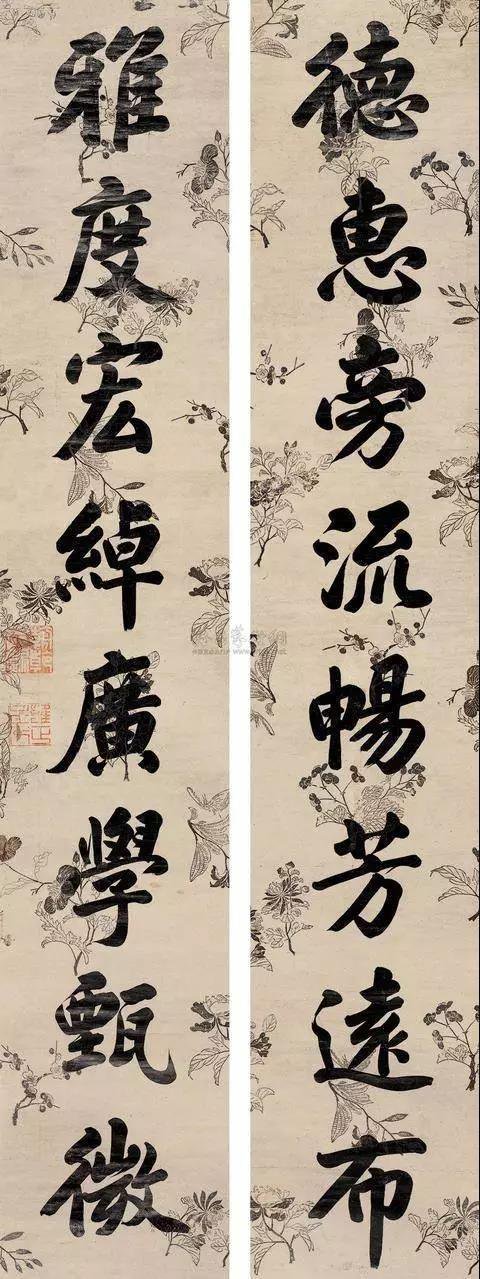 德惠旁流暢芳遠布
雅度宏綽廣學甄微